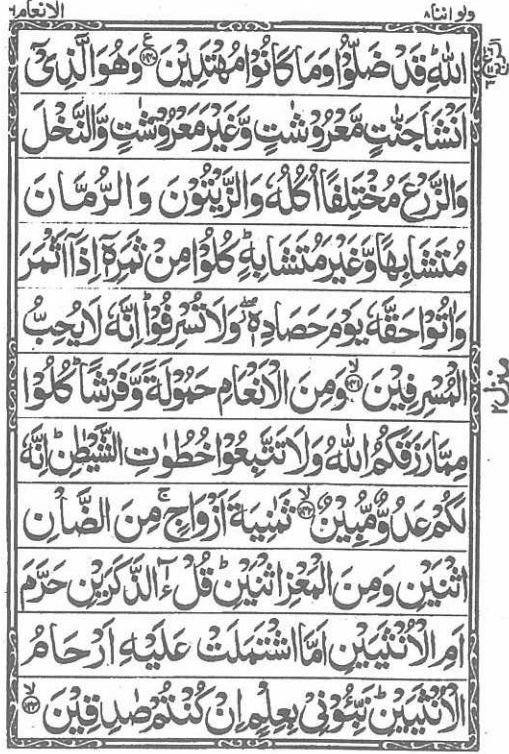 ولو اننا ٨ الانعام ٦
اللّٰهِ قَدْ ضَلُّوْا وَمَا كَانُوْا مُهْتَدِيْنَ ۝١٤٠ وَهُوَ الَّذِيْۤ
اَنْشَاَ جَنّٰتٍ مَّعْرُوْشٰتٍ وَّغَيْرَ مَعْرُوْشٰتٍ وَّالنَّخْلَ
وَالزَّرْعَ مُخْتَلِفًا اُكُلُهٗ وَالزَّيْتُوْنَ وَالرُّمَّانَ
مُتَشَابِهًا وَّغَيْرَ مُتَشَابِهٍ ؕ كُلُوْا مِنْ ثَمَرِهٖۤ اِذَاۤ اَثْمَرَ
وَاٰتُوْا حَقَّهٗ يَوْمَ حَصَادِهٖ ۖ وَلَا تُسْرِفُوْا ؕ اِنَّهٗ لَا يُحِبُّ
الْمُسْرِفِيْنَ ۝١٤١ۙ وَمِنَ الْاَنْعَامِ حَمُوْلَةً وَّفَرْشًا ؕ كُلُوْا
مِمَّا رَزَقَكُمُ اللّٰهُ وَلَا تَتَّبِعُوْا خُطُوٰتِ الشَّيْطٰنِ ؕ اِنَّهٗ
لَكُمْ عَدُوٌّ مُّبِيْنٌ ۝١٤٢ۙ ثَمٰنِيَةَ اَزْوَاجٍ ۚ مِنَ الضَّاْنِ
اثْنَيْنِ وَمِنَ الْمَعْزِ اثْنَيْنِ ؕ قُلْ ءٰٓالذَّكَرَيْنِ حَرَّمَ
اَمِ الْاُنْثَيَيْنِ اَمَّا اشْتَمَلَتْ عَلَيْهِ اَرْحَامُ
الْاُنْثَيَيْنِ ؕ نَبِّـُٔوْنِيْ بِعِلْمٍ اِنْ كُنْتُمْ صٰدِقِيْنَ ۝١٤٣ۙ
منزل ٢